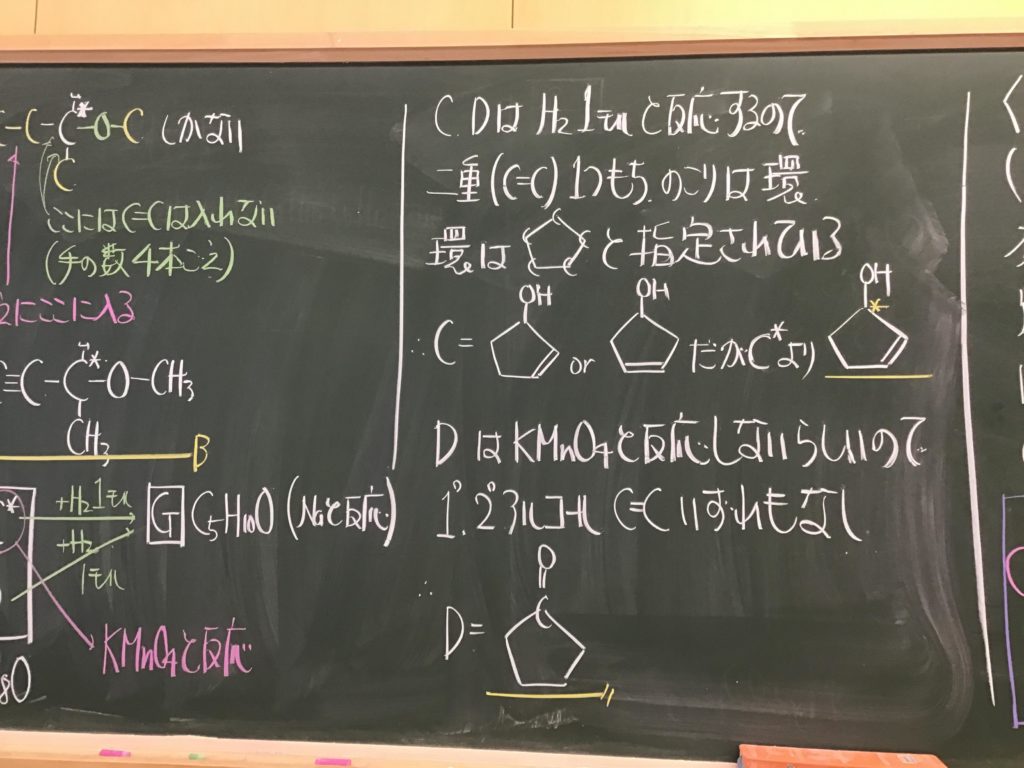 -C-C*-O-C しかない
C
ここにはC=Cは入れない
(手の数4本こえ)
にここに入る
≡C-C*-O-CH3
CH3
B
+H2 1モル
+H2
1モル
G C5H10O (Naと反応)
KMnO4と反応
8O
C, DはH2 1モルと反応するので
二重(C=C)1つもち のこりは環
環は と指定されている
OH OH OH
∴ C= or だがC*より *
DはKMnO4と反応しないらしいので
1°, 2°アルコール C=C いずれもなし
∴
O
C
D=